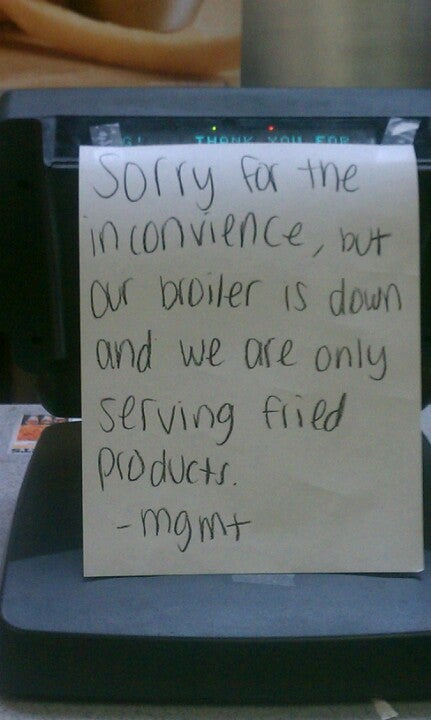 G! THANK YOU FOR
Sorry for the
inconvience, but
our broiler is down
and we are only
serving fried
products.
-mgmt